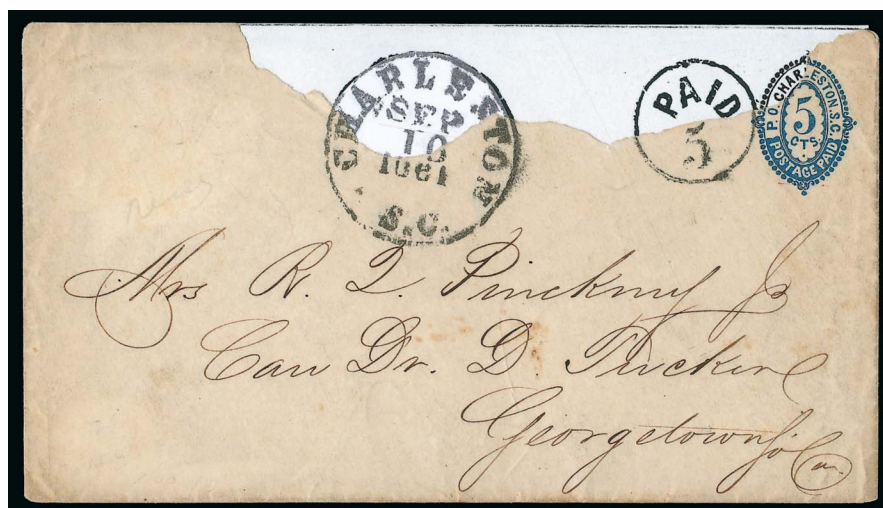 CHARLESTON
SEP
10
1861
S.C.
PAID
5
P.O. CHARLESTON, S.C.
5
CTS
POSTAGE PAID
Mrs R. Q. Pinckny Jr
Care Dr. D. Tucker
Georgetown So Ca